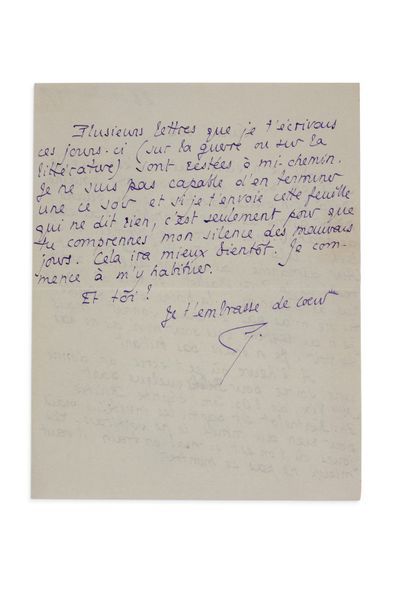 Plusieurs lettres que je t'écrivais
ces jours-ci (sur la guerre ou sur la
littérature) sont restées à mi-chemin.
Je ne suis pas capable d'en terminer
une ce soir et si je t'envoie cette feuille
qui ne dit rien, c'est seulement pour que
tu comprennes mon silence des mauvais
jours. Cela ira mieux bientôt. Je com-
mence à m'y habituer.
Et toi ?
Je t'embrasse de coeur